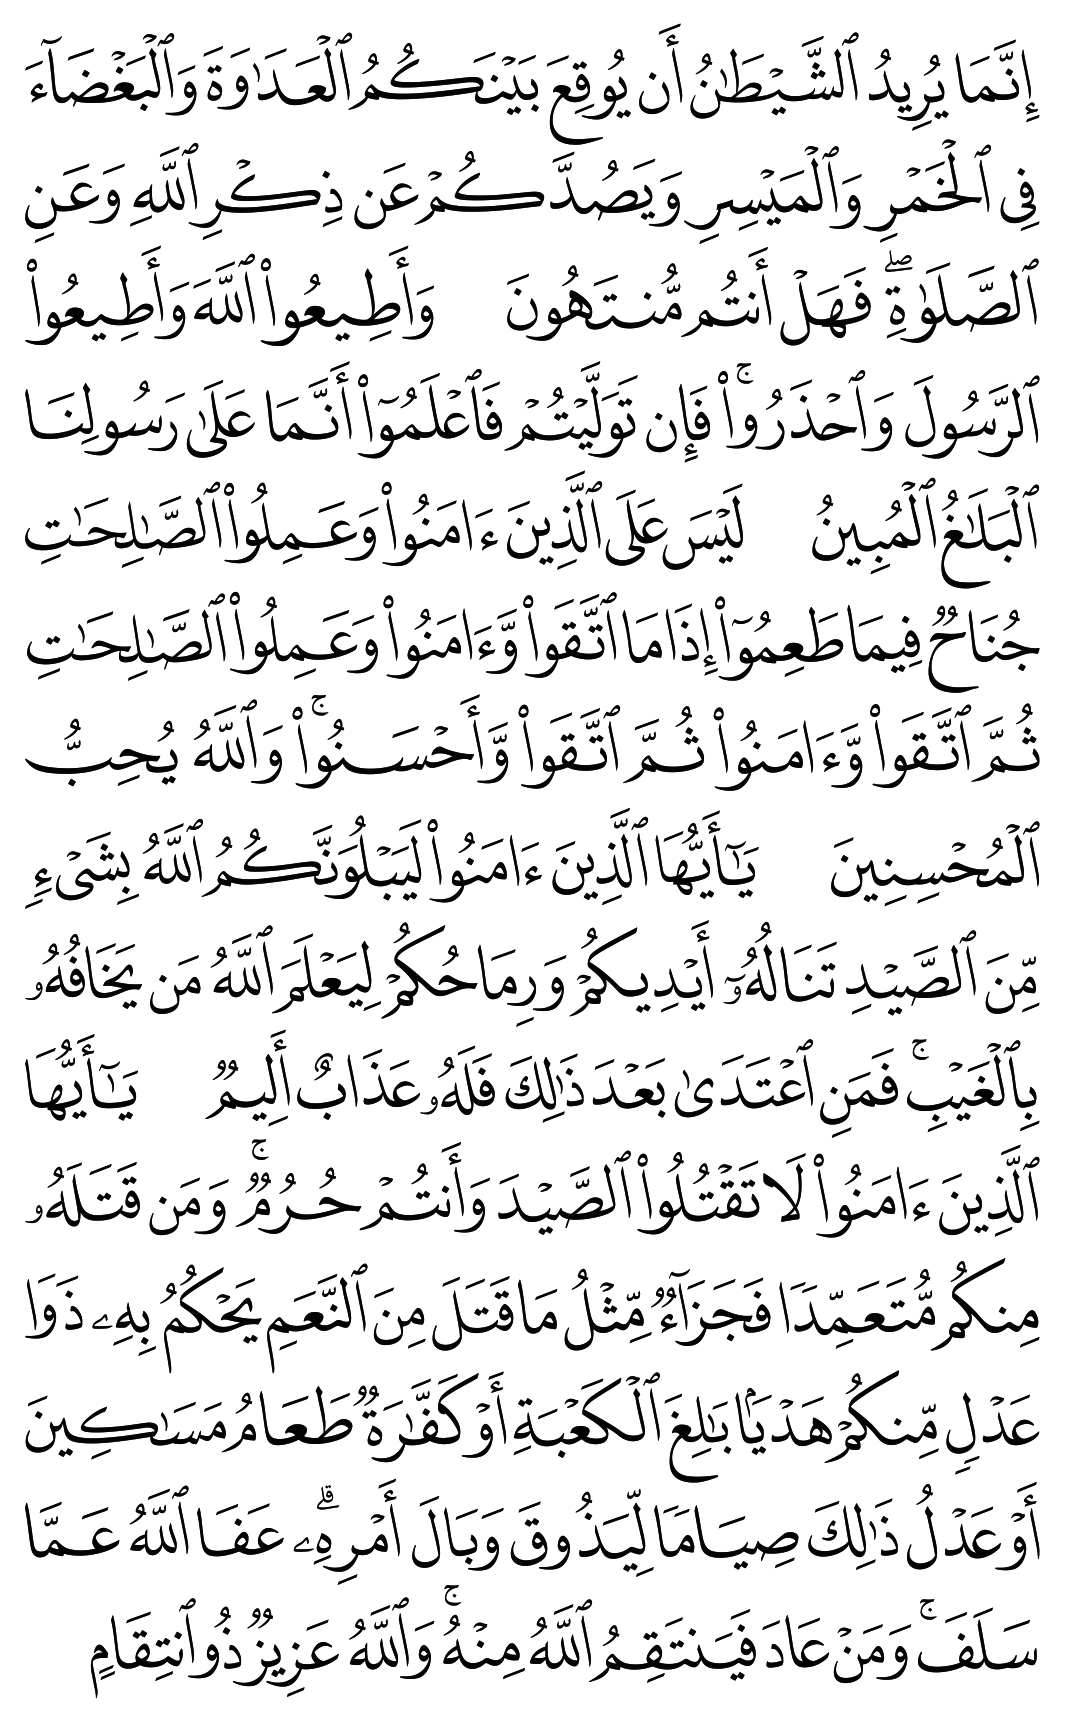 إِنَّمَا يُرِيدُ ٱلشَّيْطَٰنُ أَن يُوقِعَ بَيْنَكُمُ ٱلْعَدَٰوَةَ وَٱلْبَغْضَآءَ
فِى ٱلْخَمْرِ وَٱلْمَيْسِرِ وَيَصُدَّكُمْ عَن ذِكْرِ ٱللَّهِ وَعَنِ
ٱلصَّلَوٰةِ ۖ فَهَلْ أَنتُم مُّنتَهُونَ وَأَطِيعُوا۟ ٱللَّهَ وَأَطِيعُوا۟
ٱلرَّسُولَ وَٱحْذَرُوا۟ ۚ فَإِن تَوَلَّيْتُمْ فَٱعْلَمُوٓا۟ أَنَّمَا عَلَىٰ رَسُولِنَا
ٱلْبَلَٰغُ ٱلْمُبِينُ لَيْسَ عَلَى ٱلَّذِينَ ءَامَنُوا۟ وَعَمِلُوا۟ ٱلصَّٰلِحَٰتِ
جُنَاحٌ فِيمَا طَعِمُوٓا۟ إِذَا مَا ٱتَّقَوا۟ وَّءَامَنُوا۟ وَعَمِلُوا۟ ٱلصَّٰلِحَٰتِ
ثُمَّ ٱتَّقَوا۟ وَّءَامَنُوا۟ ثُمَّ ٱتَّقَوا۟ وَّأَحْسَنُوا۟ ۚ وَٱللَّهُ يُحِبُّ
ٱلْمُحْسِنِينَ يَٰٓأَيُّهَا ٱلَّذِينَ ءَامَنُوا۟ لَيَبْلُوَنَّكُمُ ٱللَّهُ بِشَىْءٍ
مِّنَ ٱلصَّيْدِ تَنَالُهُۥٓ أَيْدِيكُمْ وَرِمَاحُكُمْ لِيَعْلَمَ ٱللَّهُ مَن يَخَافُهُۥ
بِٱلْغَيْبِ ۚ فَمَنِ ٱعْتَدَىٰ بَعْدَ ذَٰلِكَ فَلَهُۥ عَذَابٌ أَلِيمٌ يَٰٓأَيُّهَا
ٱلَّذِينَ ءَامَنُوا۟ لَا تَقْتُلُوا۟ ٱلصَّيْدَ وَأَنتُمْ حُرُمٌ ۚ وَمَن قَتَلَهُۥ
مِنكُم مُّتَعَمِّدًا فَجَزَآءٌ مِّثْلُ مَا قَتَلَ مِنَ ٱلنَّعَمِ يَحْكُمُ بِهِۦ ذَوَا
عَدْلٍ مِّنكُمْ هَدْيًۢا بَٰلِغَ ٱلْكَعْبَةِ أَوْ كَفَّٰرَةٌ طَعَامُ مَسَٰكِينَ
أَوْ عَدْلُ ذَٰلِكَ صِيَامًا لِّيَذُوقَ وَبَالَ أَمْرِهِۦ ۗ عَفَا ٱللَّهُ عَمَّا
سَلَفَ ۚ وَمَنْ عَادَ فَيَنتَقِمُ ٱللَّهُ مِنْهُ ۚ وَٱللَّهُ عَزِيزٌ ذُو ٱنتِقَامٍ